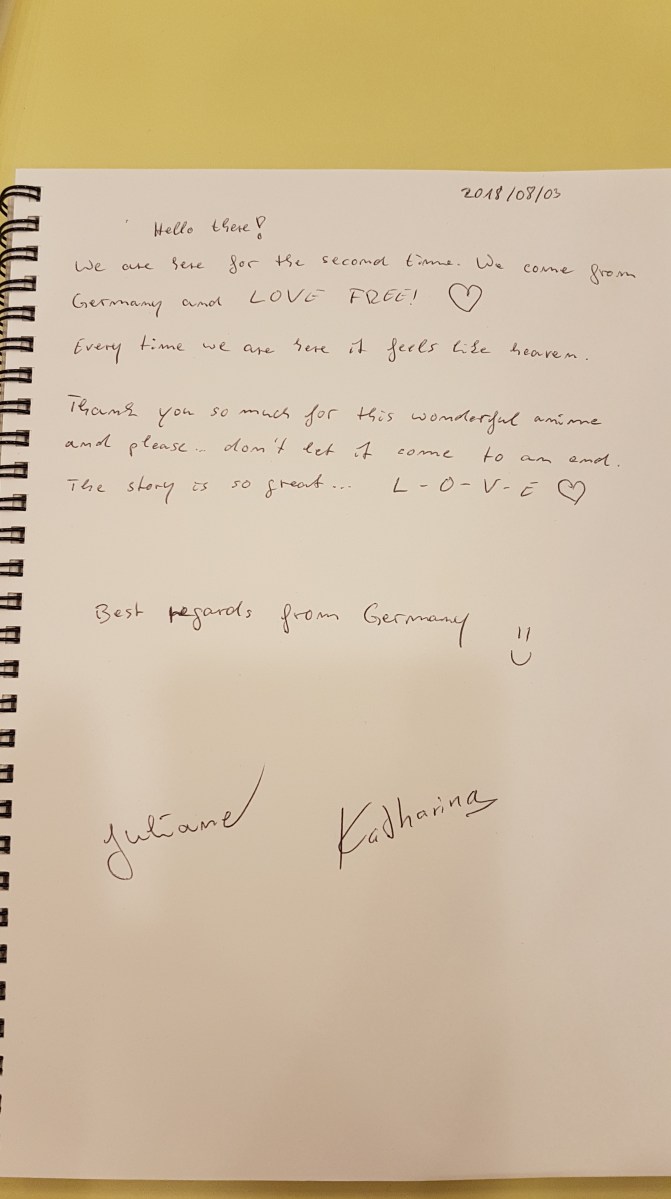 2018/08/03
Hello there!
We are here for the second time. We come from
Germany and LOVE FREE! ♡
Every time we are here it feels like heaven.
Thank you so much for this wonderful anime
and please.. don't let it come to an end.
The story is so great... L-O-V-E ♡
Best regards from Germany
Juliane Katharina